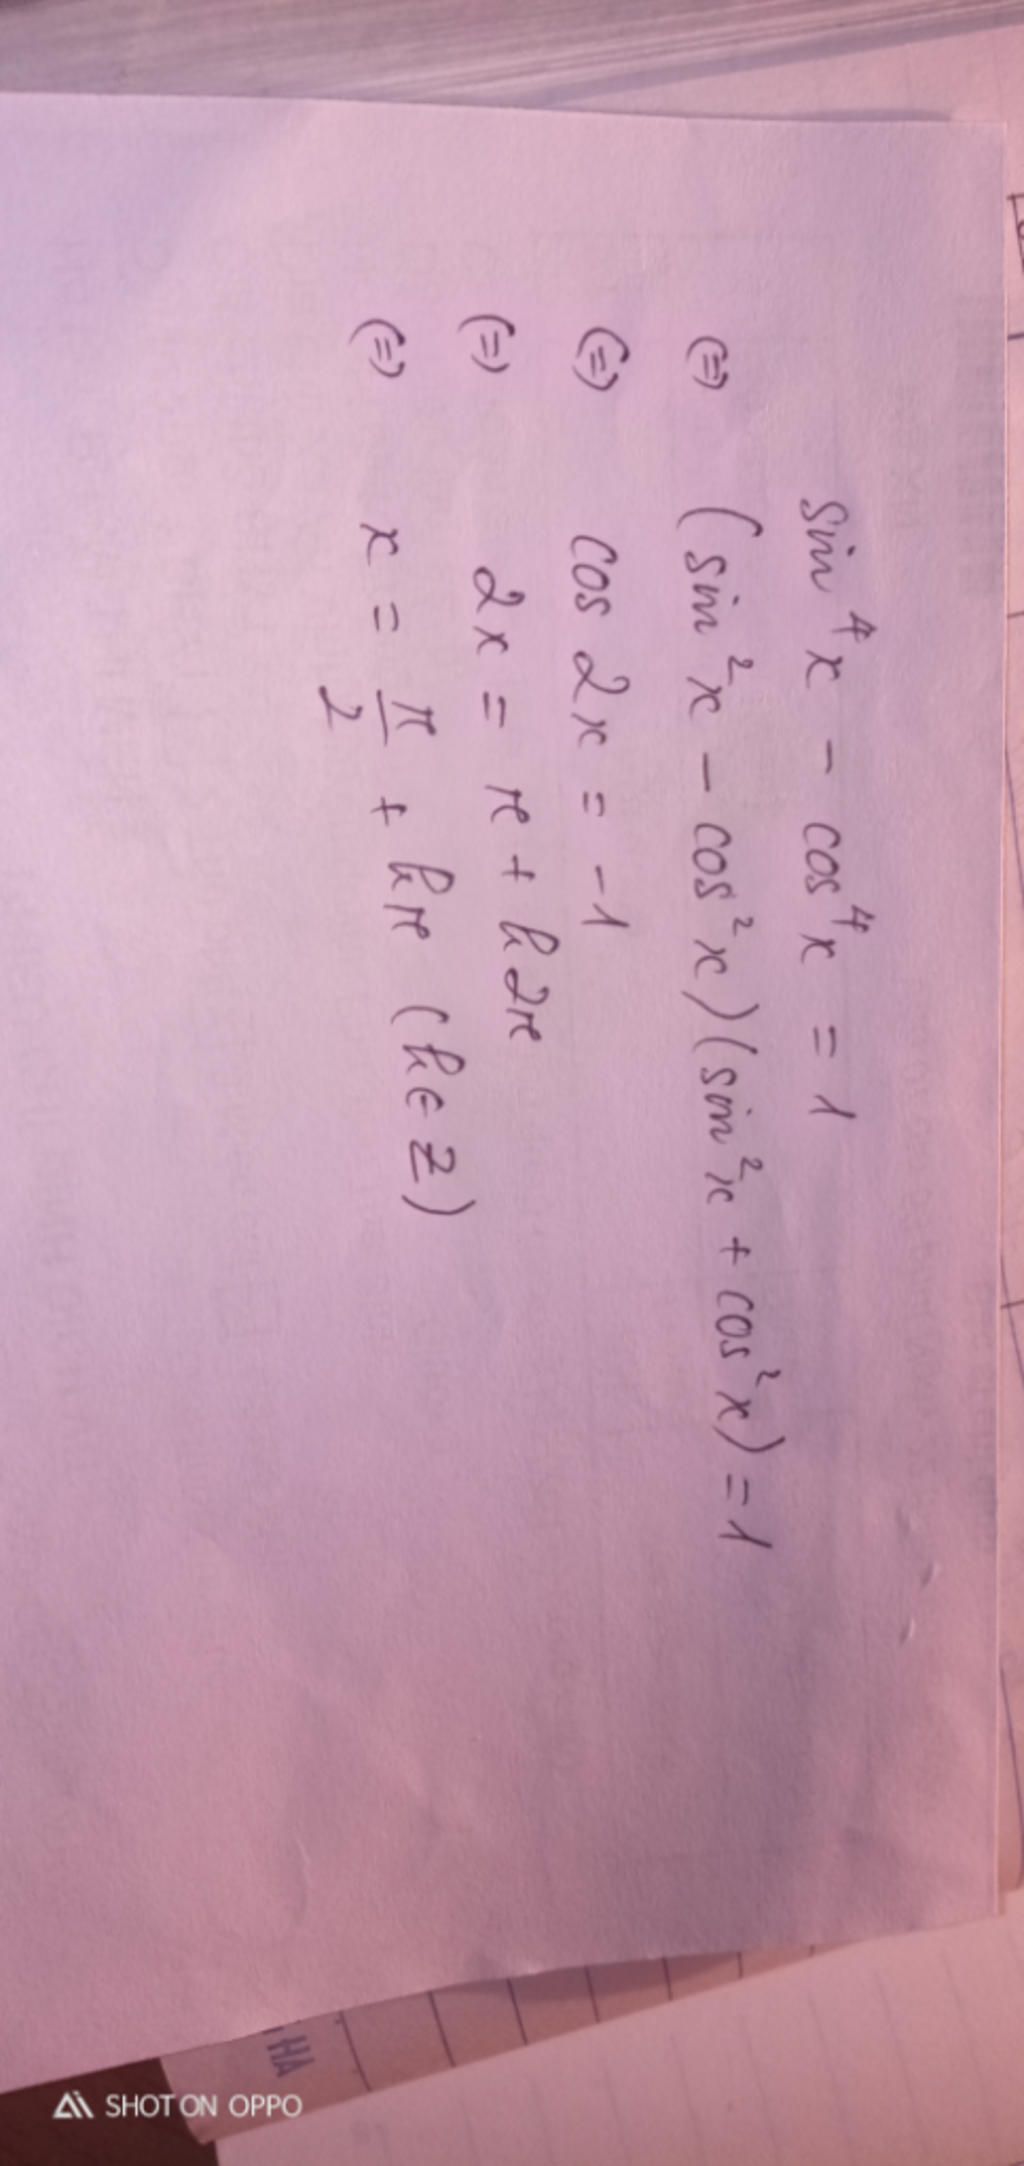 sin⁴x - cos⁴x = 1
(=) (sin²x - cos²x)(sin²x + cos²x) = 1
(=) cos 2x = -1
(=) 2x = π + k2π
(=) x = π/2 + kπ (k∈Z)
HA
SHOT ON OPPO